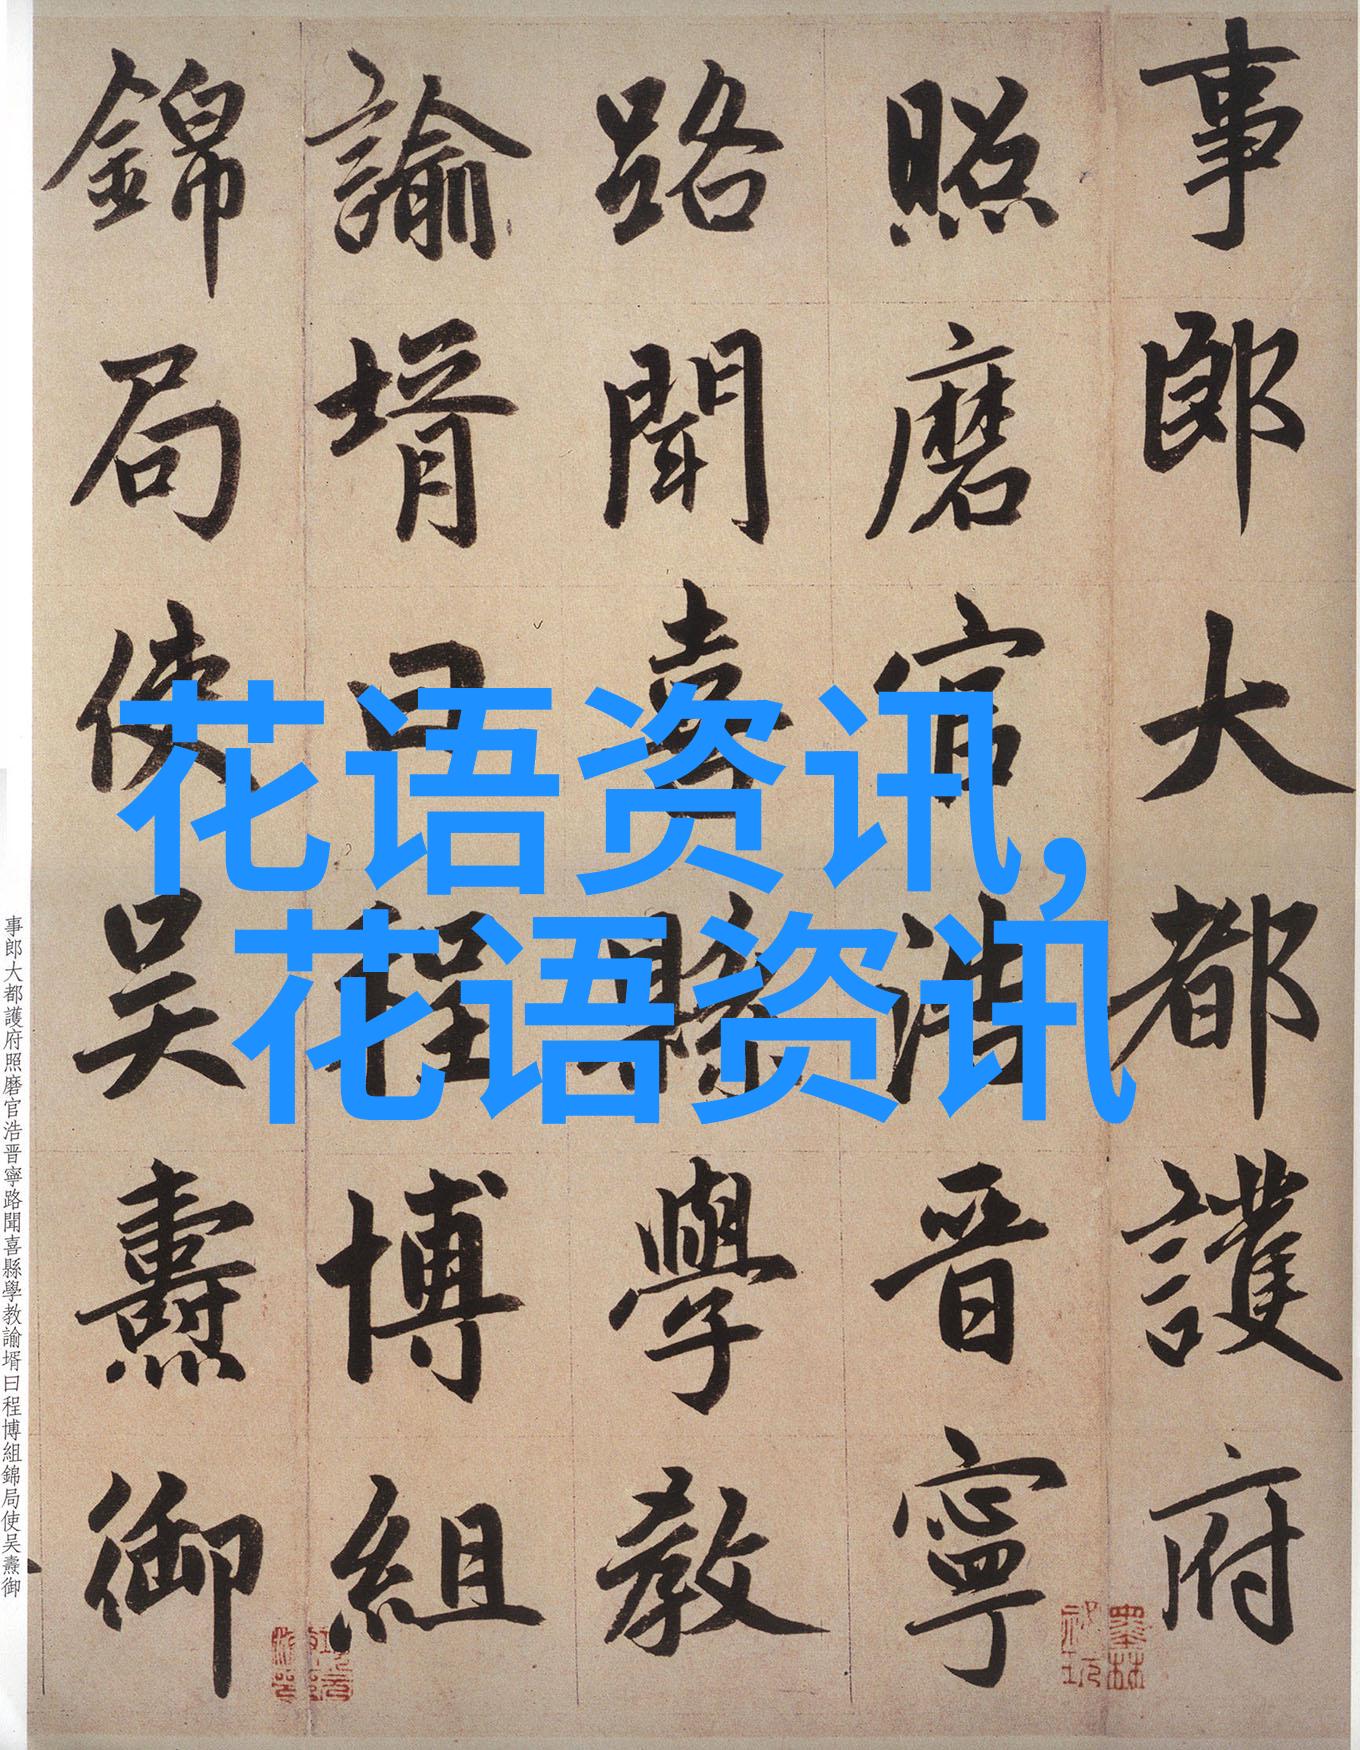 事郎大都護府
照磨官浩晋寧
路聞喜縣學教
諭壻曰程博組
錦局使吴燾御
花语资讯,
花语资讯
事郎大都護府照磨官浩晋寧路聞喜縣學教諭壻曰程博組錦局使吴燾御